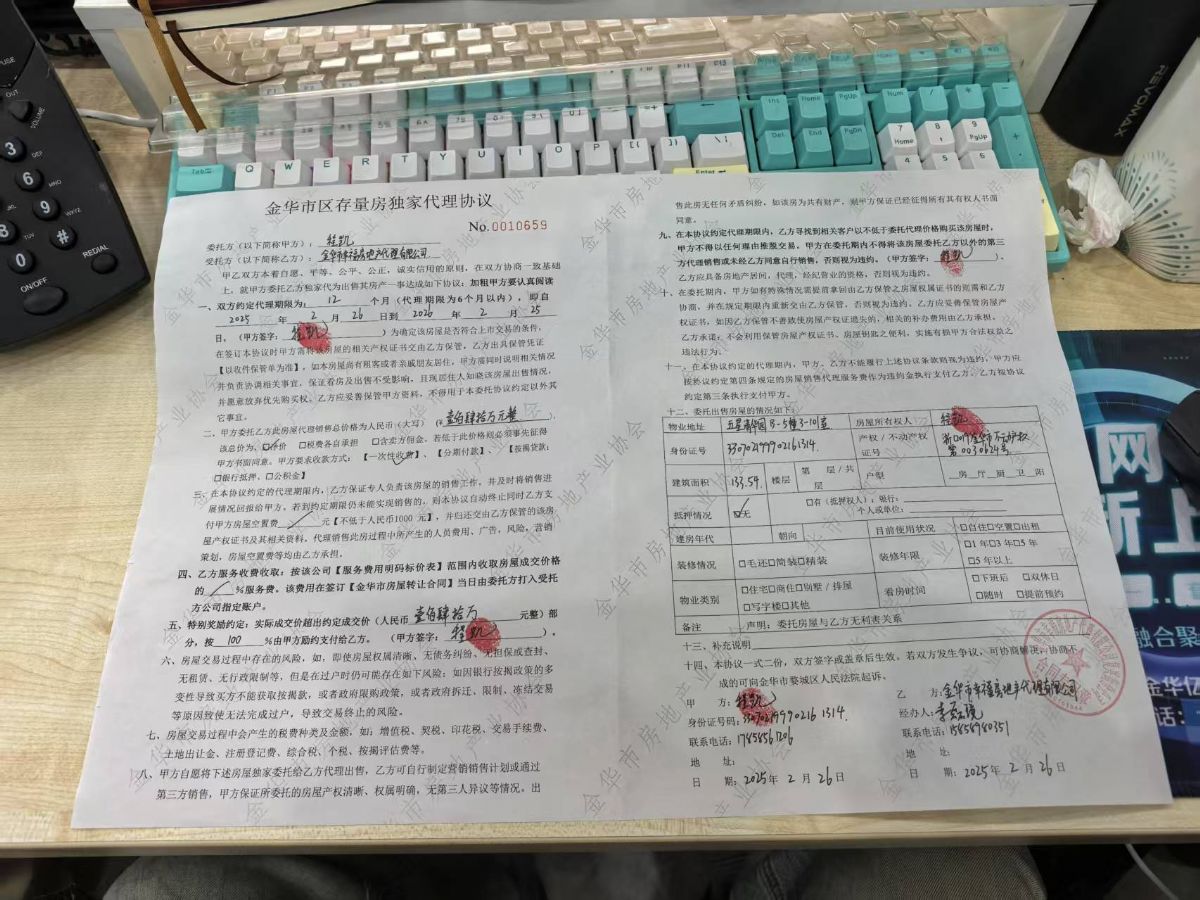 金华市区存量房独家代理协议
No.0010659
委托方（以下简称甲方）：程凯
受托方（以下简称乙方）：金华市幸福房地产代理有限公司
甲乙双方本着自愿、平等、公平、公正，诚实信用的原则，在双方协商一致基础
上，就甲方委托乙方独家代为出售其房产一事达成如下协议：加粗甲方要认真阅读
一、双方约定代理期限为： 12 个月（代理期限为6个月以内），即自
2025 年 2 月 26 日到 2026 年 2 月 25
日，（甲方签字：程凯）为确定该房屋是否符合上市交易的条件，
在签订本协议时甲方需将该房屋的相关产权证书交由乙方，乙方出具保管凭证
【以收件保管单为准】，如本房屋尚有租客或者亲戚朋友居住，甲方需同时说明相关情况
并负责协调相关事宜，保证看房及出售不受影响，且现居住人知晓该房屋出售情况，
并愿意放弃优先购买权。乙方应妥善保管甲方资料，不得用于本委托协议约定以外其
它事宜。
二、甲方委托乙方此房屋代理销售总价格为人民币（大写）（¥壹佰肆拾万元整），
该总价为：☑净价 □税费各自承担 □含卖方佣金，若低于此价格则必须事先征得
甲方书面同意。甲方要求收款方式：【一次性收费】、【分期付款】、【按揭贷款：
□银行抵押、□公积金】
三、在本协议约定的代理期限内，乙方保证专人负责该房屋的销售工作，并及时将销售进
展情况回报给甲方，若到约定期限仍未能实现销售的，则本协议自动终止同时乙方支
付甲方房屋空置费 / 元【不低于人民币1000 元】，并归还交由乙方保管的该房
屋产权证书及其相关资料，代理销售此房过程中所产生的人员费用、广告，风险，营销
策划，房屋空置费等均由乙方承担。
四、乙方服务收费收取：按该公司【服务费用明码标价表】范围内收取房屋成交价格
的 / %服务费。该费用在签订【金华市房屋转让合同】当日由委托方打入受托
方公司指定账户。
五、特别奖励约定：实际成交价超出约定成交价（人民币 壹佰肆拾万 元整）部
分，按 100 %由甲方励约支付给乙方。（甲方签字：程凯）。
六、房屋交易过程中存在的风险，如，即使房屋权属清晰、无债务纠纷、无担保或查封、
无租赁、无行政限制等，但是在过户时仍可能存在如下风险：如因银行按揭政策的多
变性导致买方不能获取按揭款，或者政府限购政策，或者政府拆迁、限制、冻结交易
等原因致使无法完成过户，导致交易终止的风险。
七、房屋交易过程中会产生的税费种类及金额，如：增值税、契税、印花税、交易手续费、
土地出让金、注册登记费、综合税、个税、按揭评估费等。
八、甲方自愿将下述房屋独家委托给乙方代理出售，乙方可自行制定营销销售计划或通过
第三方销售，甲方保证所委托的房屋产权清晰、权属明确，无第三人异议等情况。出
售此房无任何矛盾纠纷，如该房为共有财产，则甲方保证已经征得所有其有权人书面
同意。
九、在本协议约定代理期限内，乙方寻找到相关客户以不低于委托代理价格购买该房屋时，
甲方不得以任何理由推脱交易，甲方在委托期内不得将该房屋委托乙方以外的第三
方代理销售或未经乙方同意自行销售，否则视为违约。（甲方签字：程凯）。
乙方应具备房地产居间，代理，经纪营业的资格，否则视为违约。
十、在委托期内，甲方如有特殊情况需提前拿回由乙方保管之房屋权属证书的则需和乙方
协商，并在规定期限内重新交由乙方保管，否则视为违约。乙方应妥善保管房屋产
权证书，如因乙方保管不善致使房屋产权证遗失的，相关的补办费用由乙方承担。
乙方承诺：不会利用保管房屋产权证书、房屋钥匙之便利，实施有损甲方合法权益之
违法行为。
十一、在本协议约定的代理期内，甲方、乙方不能履行上述协议条款则视为违约，甲方应
按协议约定第四条规定的房屋销售代理服务费作为违约金执行支付乙方。乙方按协议
约定第三条执行支付甲方。
十二、委托出售房屋的情况如下：
物业地址 3-5幢3-101室 房屋所有权人 程凯
身份证号 330702199902161314. 产权／不动产权证号 浙 金华市不动产权第0030624号
建筑面积 133.54. 楼层 第 层／共 层 户型 房 厅 厨 卫 阳
抵押情况 ☑无 □有（抵押权人）：银行：
个人或单位：
建房年代 朝向 目前使用状况 □自住□空置□出租
装修情况 □毛还□简装□精装 装修年限 □1年□3年□5年
□5年以上
物业类别 □住宅□商住□别墅／排屋 看房时间 □下班后 □双休日
□写字楼□其他 □随时 □提前预约
备注 声明：委托房屋与乙方无利害关系
十三、补充说明
十四、本协议一式二份，双方签字或盖章后生效，若双方发生争议，可协商解决，协商不
成的可向金华市婺城区人民法院起诉。
甲 方：程凯
身份证号码：330702199902161314.
联系电话：17858561206
地 址：
日 期：2025年 2 月 26日
乙 方：金华市幸福房地产代理有限公司
经办人：
联系电话：15858980351
地 址：
日 期：2025年 2 月 26日